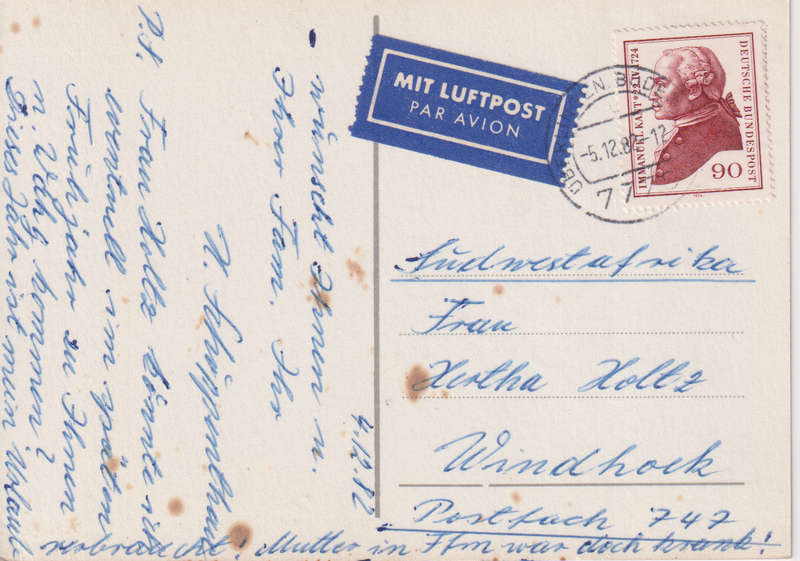 - wünscht Ihnen u.
Ihrer Fam. Ihr
4.12.82
P.S. Frau Holtz könnte ich
eventuell im späten
Frühjahr zu Ihnen
n. Whg kommen?
Dieses Jahr ist mein Urlaub
verbraucht! Mutter in Ffm war doch krank!
MIT LUFTPOST
PAR AVION
IMMANUEL KANT * 22.IV.1724
DEUTSCHE BUNDESPOST
90
-5.12.82-12
77
Südwestafrika
Frau
Hertha Holtz
Windhoek
Postfach 747